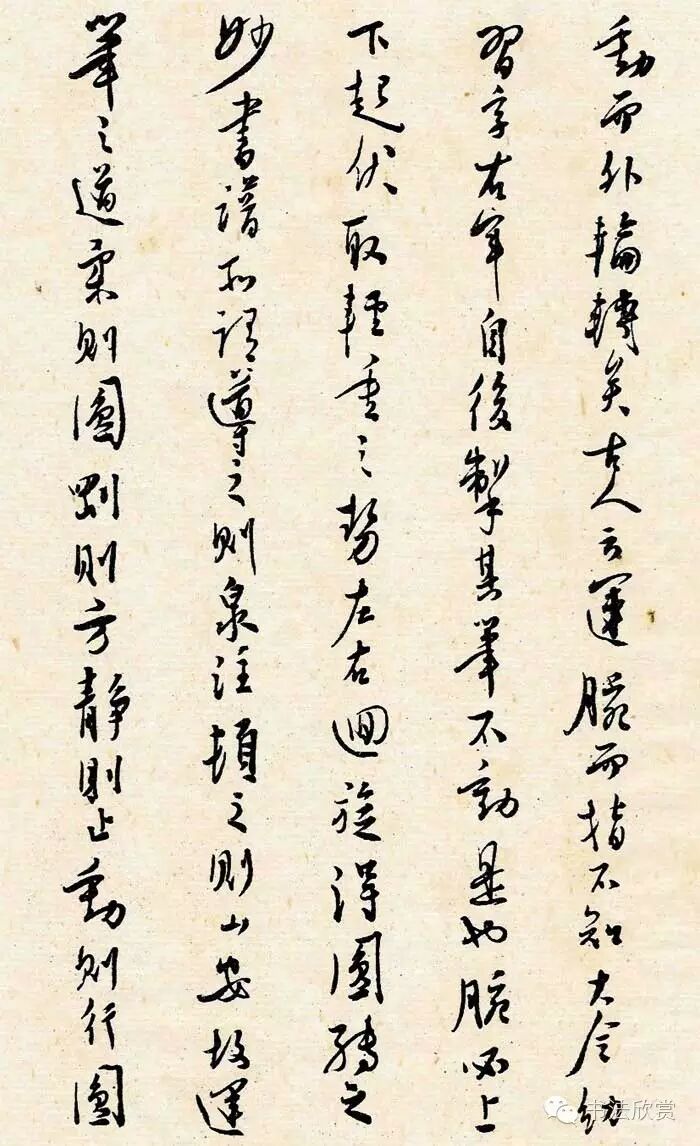 動而外輪轉矣古人云運腕而指不知大令幼
習字右軍自後掣其筆不動是也腕必上
下起伏取輕重之勢左右迴旋得圓轉之
妙書譜所謂導之則泉注頓之則山安故運
筆之道柔則圓剛則方靜則止動則行圓
书法欣赏